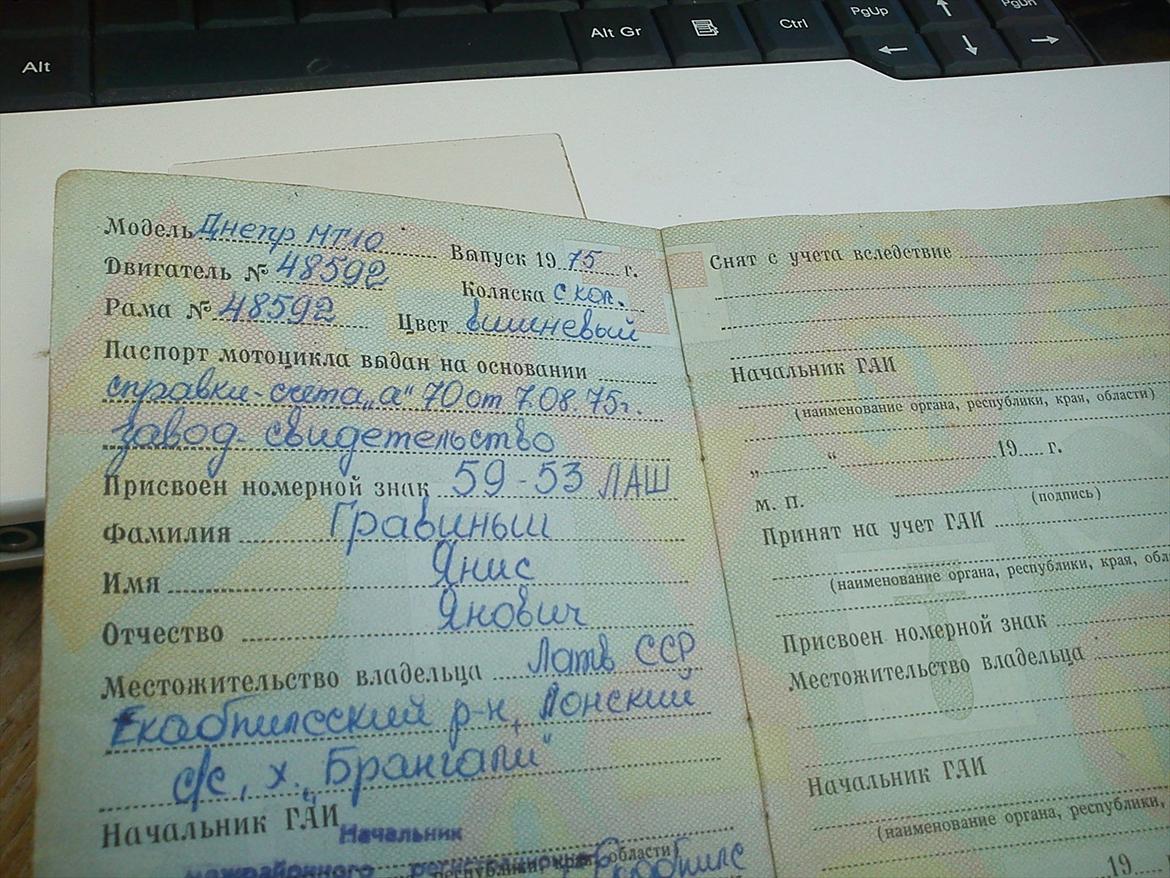 Alt
Alt Gr
Ctrl
PgUp
PgDn
Модель Днепр МТ10 Выпуск 1975 г.
Двигатель № 48592 Коляска с кол.
Рама № 48592 Цвет вишневый
Паспорт мотоцикла выдан на основании
справки-счета „а" 70 от 7.08.75г.
завод-свидетельство
Присвоен номерной знак 59-53 ЛАШ
Фамилия Гравиньш
Имя Янис
Отчество Янович
Местожительство владельца Латв ССР
Екабпилсский р-н,
с/с, х. „Брангали"
Начальник ГАИ Начальник
межрайонного
области
Снят с учета вследствие
Начальник ГАИ
(наименование органа, республики, края, области)
„ “ 19 г.
м. п. (подпись)
Принят на учет ГАИ
(наименование органа, республики, края, обл
Присвоен номерной знак
Местожительство владельца
Начальник ГАИ
(наименование органа, республики,
19